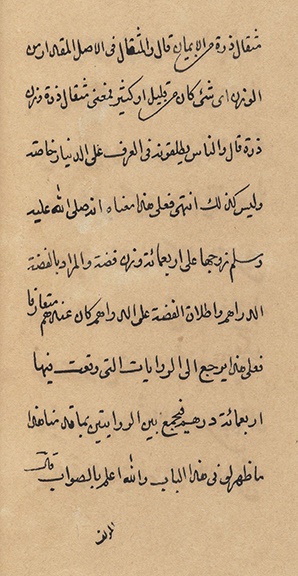 مثقال ذرة من الإيمان قال والمثقال في الاصل المقدار من
الوزن اى شئ كان من قليل او كثير فمعنى مثقال ذرة وزن
ذرة قال والناس يطلقونه فى العرف على الدينار خاصة
وليس كذلك انتهى فعلى هذا معناه انه صلى الله عليه
وسلم تزوجها على اربعمائة وزن فضة والمراد بالفضة
الدراهم واطلاق الفضة على الدراهم كان عندهم متعارفا
فعلى هذا يرجع الى الروايات التى وقعت فيها
اربعمائة درهم فيجمع بين الروايتين بما قدمنا هذا
ما ظهر لى فى هذا الباب والله اعلم بالصواب